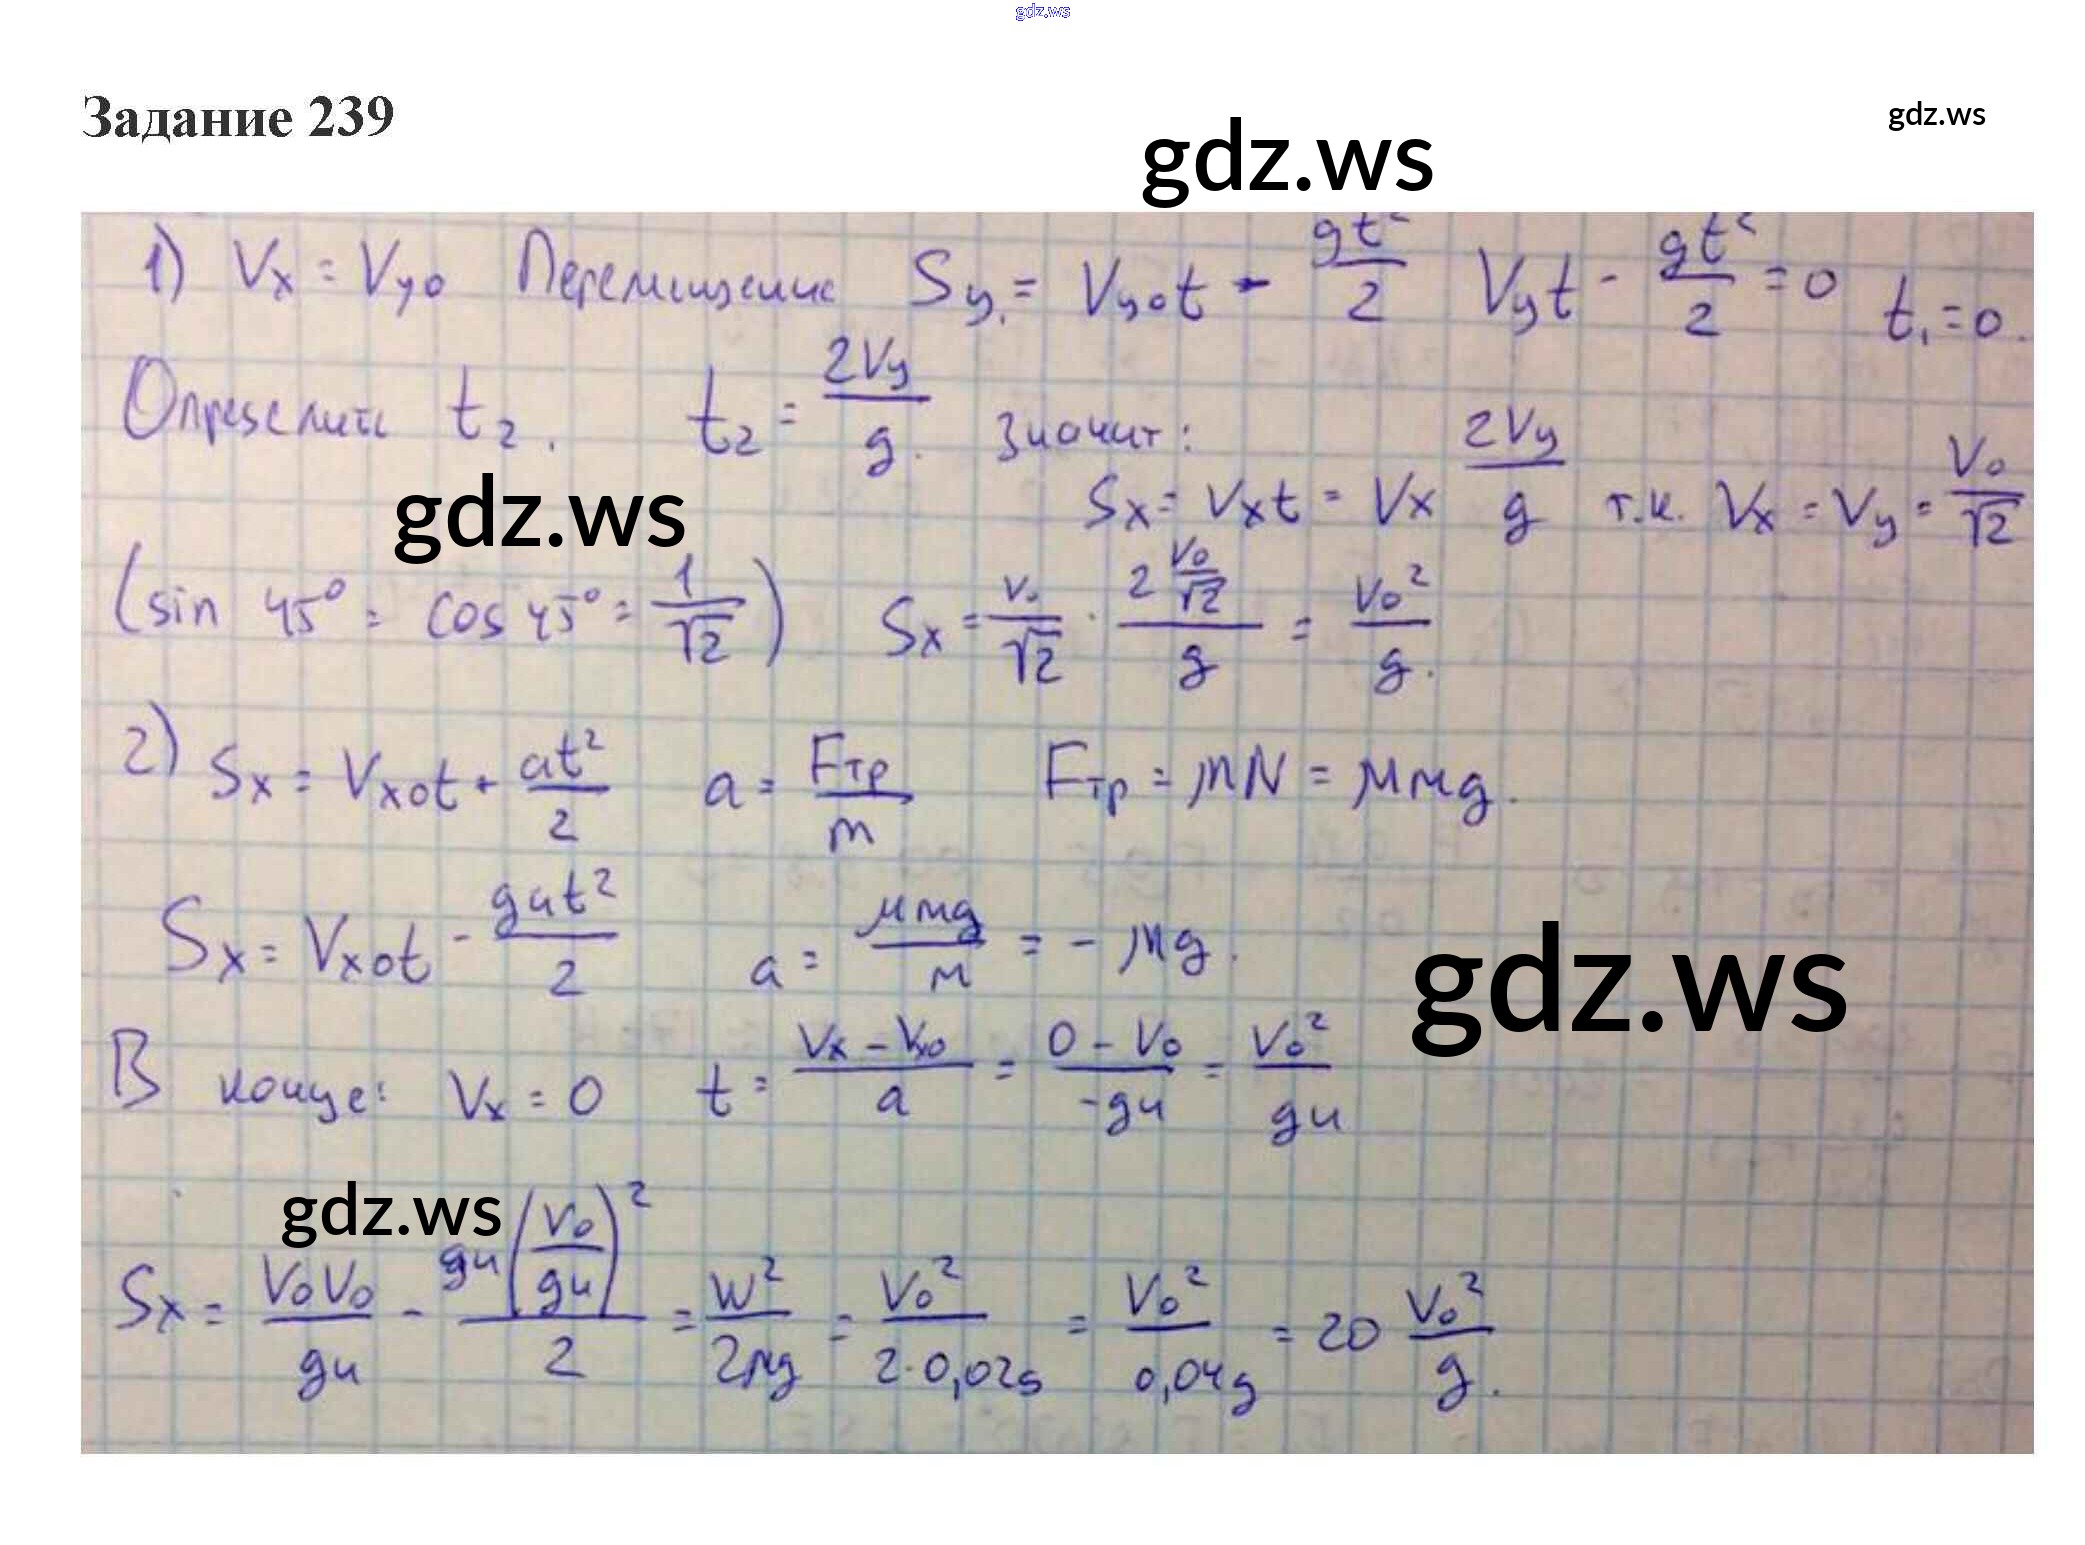 gdz.ws
Задание 239
gdz.ws
gdz.ws
1) Vx = Vy0 Перемещение Sy = Vy0t - gt²/2 Vyt - gt²/2 = 0 t₁ = 0.
Определить t₂. t₂ = 2Vy/g. Значит:
Sx = Vxt = Vx 2Vy/g т.к. Vx = Vy = V₀/√2
gdz.ws
(sin 45° = cos 45° = 1/√2) Sx = V₀/√2 · 2 V₀/√2 / g = V₀²/g.
2) Sx = Vx0t + at²/2 a = Fтр/m Fтр = μN = μmg.
Sx = Vx0t - gμt²/2 a = μmg/m = - μg.
gdz.ws
В конце: Vx = 0 t = (Vx - Vx0)/a = (0 - V₀)/(-gμ) = V₀²/gμ
gdz.ws
Sx = V₀V₀/gμ - gμ(V₀/gμ)²/2 = V²/2μg = V₀²/2·0,02g = V₀²/0,04g = 20 V₀²/g.